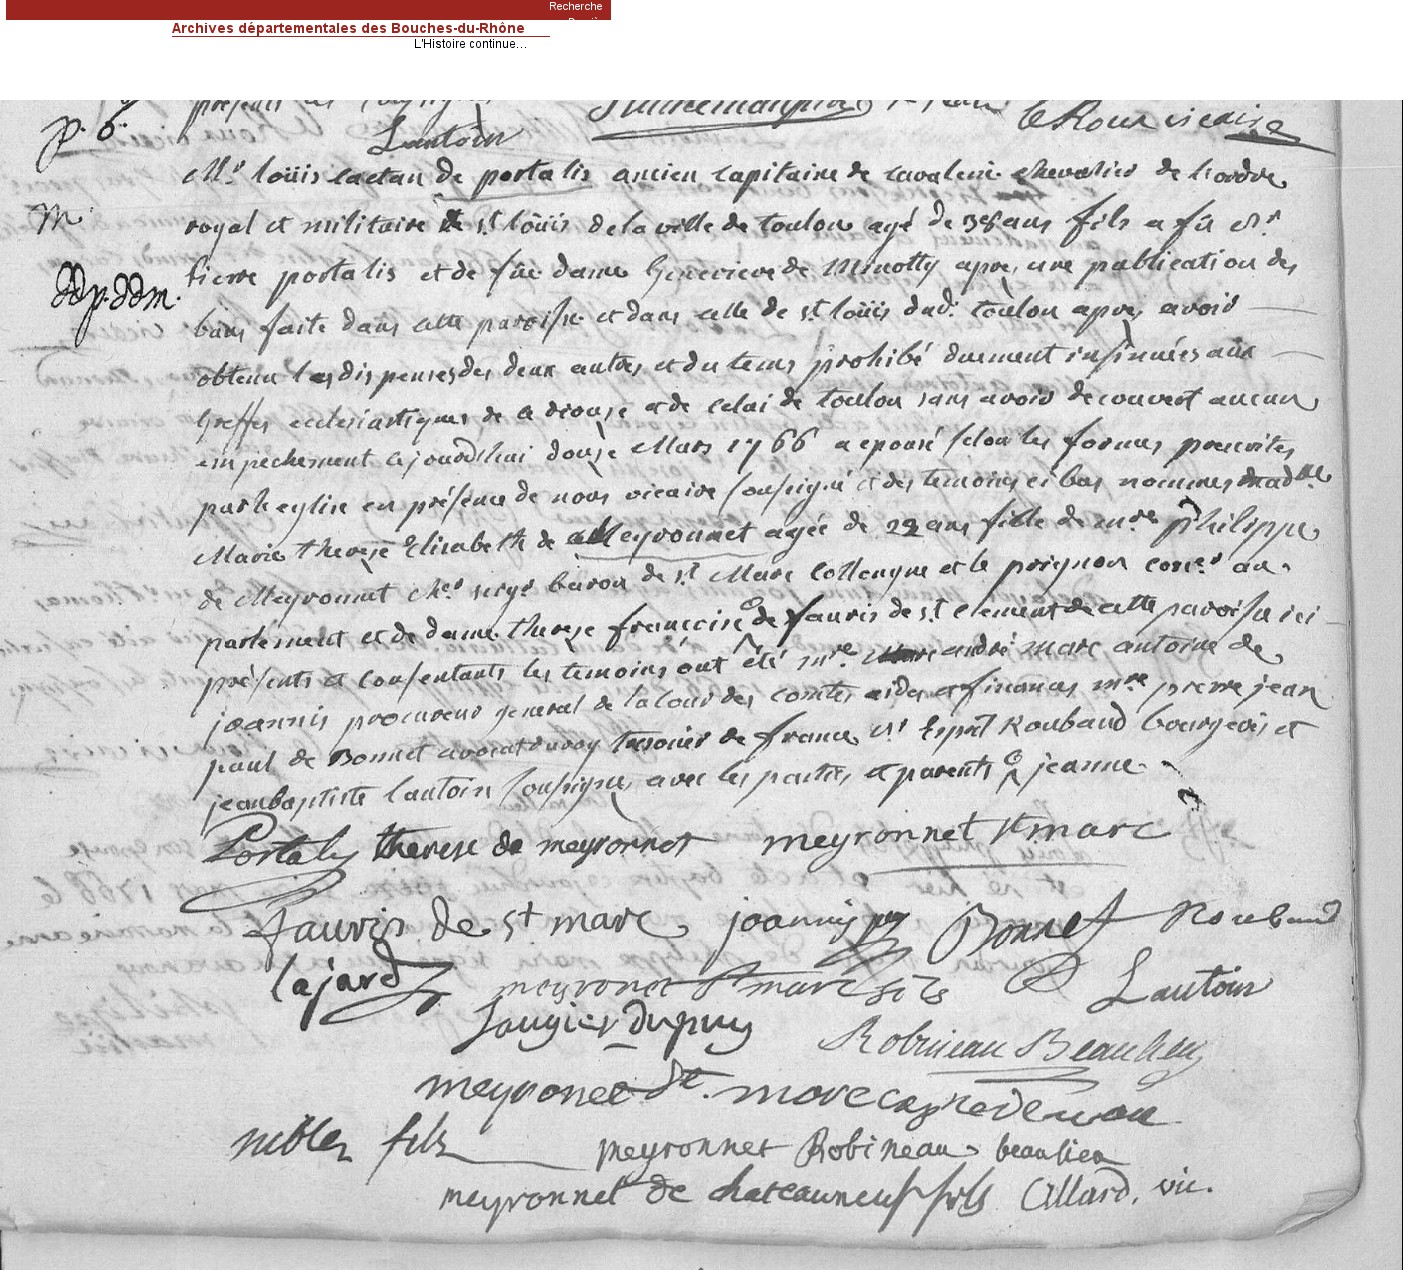 Recherche
Archives départementales des Bouches-du-Rhône
L'Histoire continue...
p. 6.
le Roux vicaire
Lautoin
Mr loüis caetan de portalis ancien capitaine de cavalerie chevalier de l'ordre
M
royal et militaire de st loüis de la ville de toulon agé de 38 ans fils a fû Sr
pierre portalis et de füe dame Genevieve de Minotty apres une publication des
ddp. ddm.
bans faite dans cette paroisse et dans celle de st loüis dud. toulon apres avoir
obtenu les dispenses des deux autres et du tems prohibé duement insinuées aux
Greffes ecclesiastiques de ce diocese et de celui de toulon sans avoir decouvert aucun
empechement cejourdhui douze Mars 1766 a epousé selon les formes prescrites
par leglise en présence de nous vicaire soussigné et des temoins ci bas nommes madlle
Marie therese Elisabeth de Meyronnet agée de 22 ans fille de mre philippe
de Meyronnet cher seigr baron de st Marc collongue et le poignon coner au
parlement et de dame therese francoise de fauris de st clement de cette paroisse ici
présents et consentants les temoins ont été mre andré marc antoine de
joannis procureur general de la cour des comtes aides et finances mre pierre jean
paul de Bonnet avocat du roy tresorier de france Sr Esprit Roubaud bourgeois et
jeanbaptiste lautoin soussignes avec les parties et parents
Portaly therese de meyronnet meyronnet st marc
fauris de st marc joannis pg Bonnet Roubaud
Lajard meyronet St marc fils Lautoin
Saugier dupuy Robineau Beaulieu
meyronet de St. marc
fils meyronnet Robineau beaulieu
meyronnet de chateauneuf fils Allard, vic.